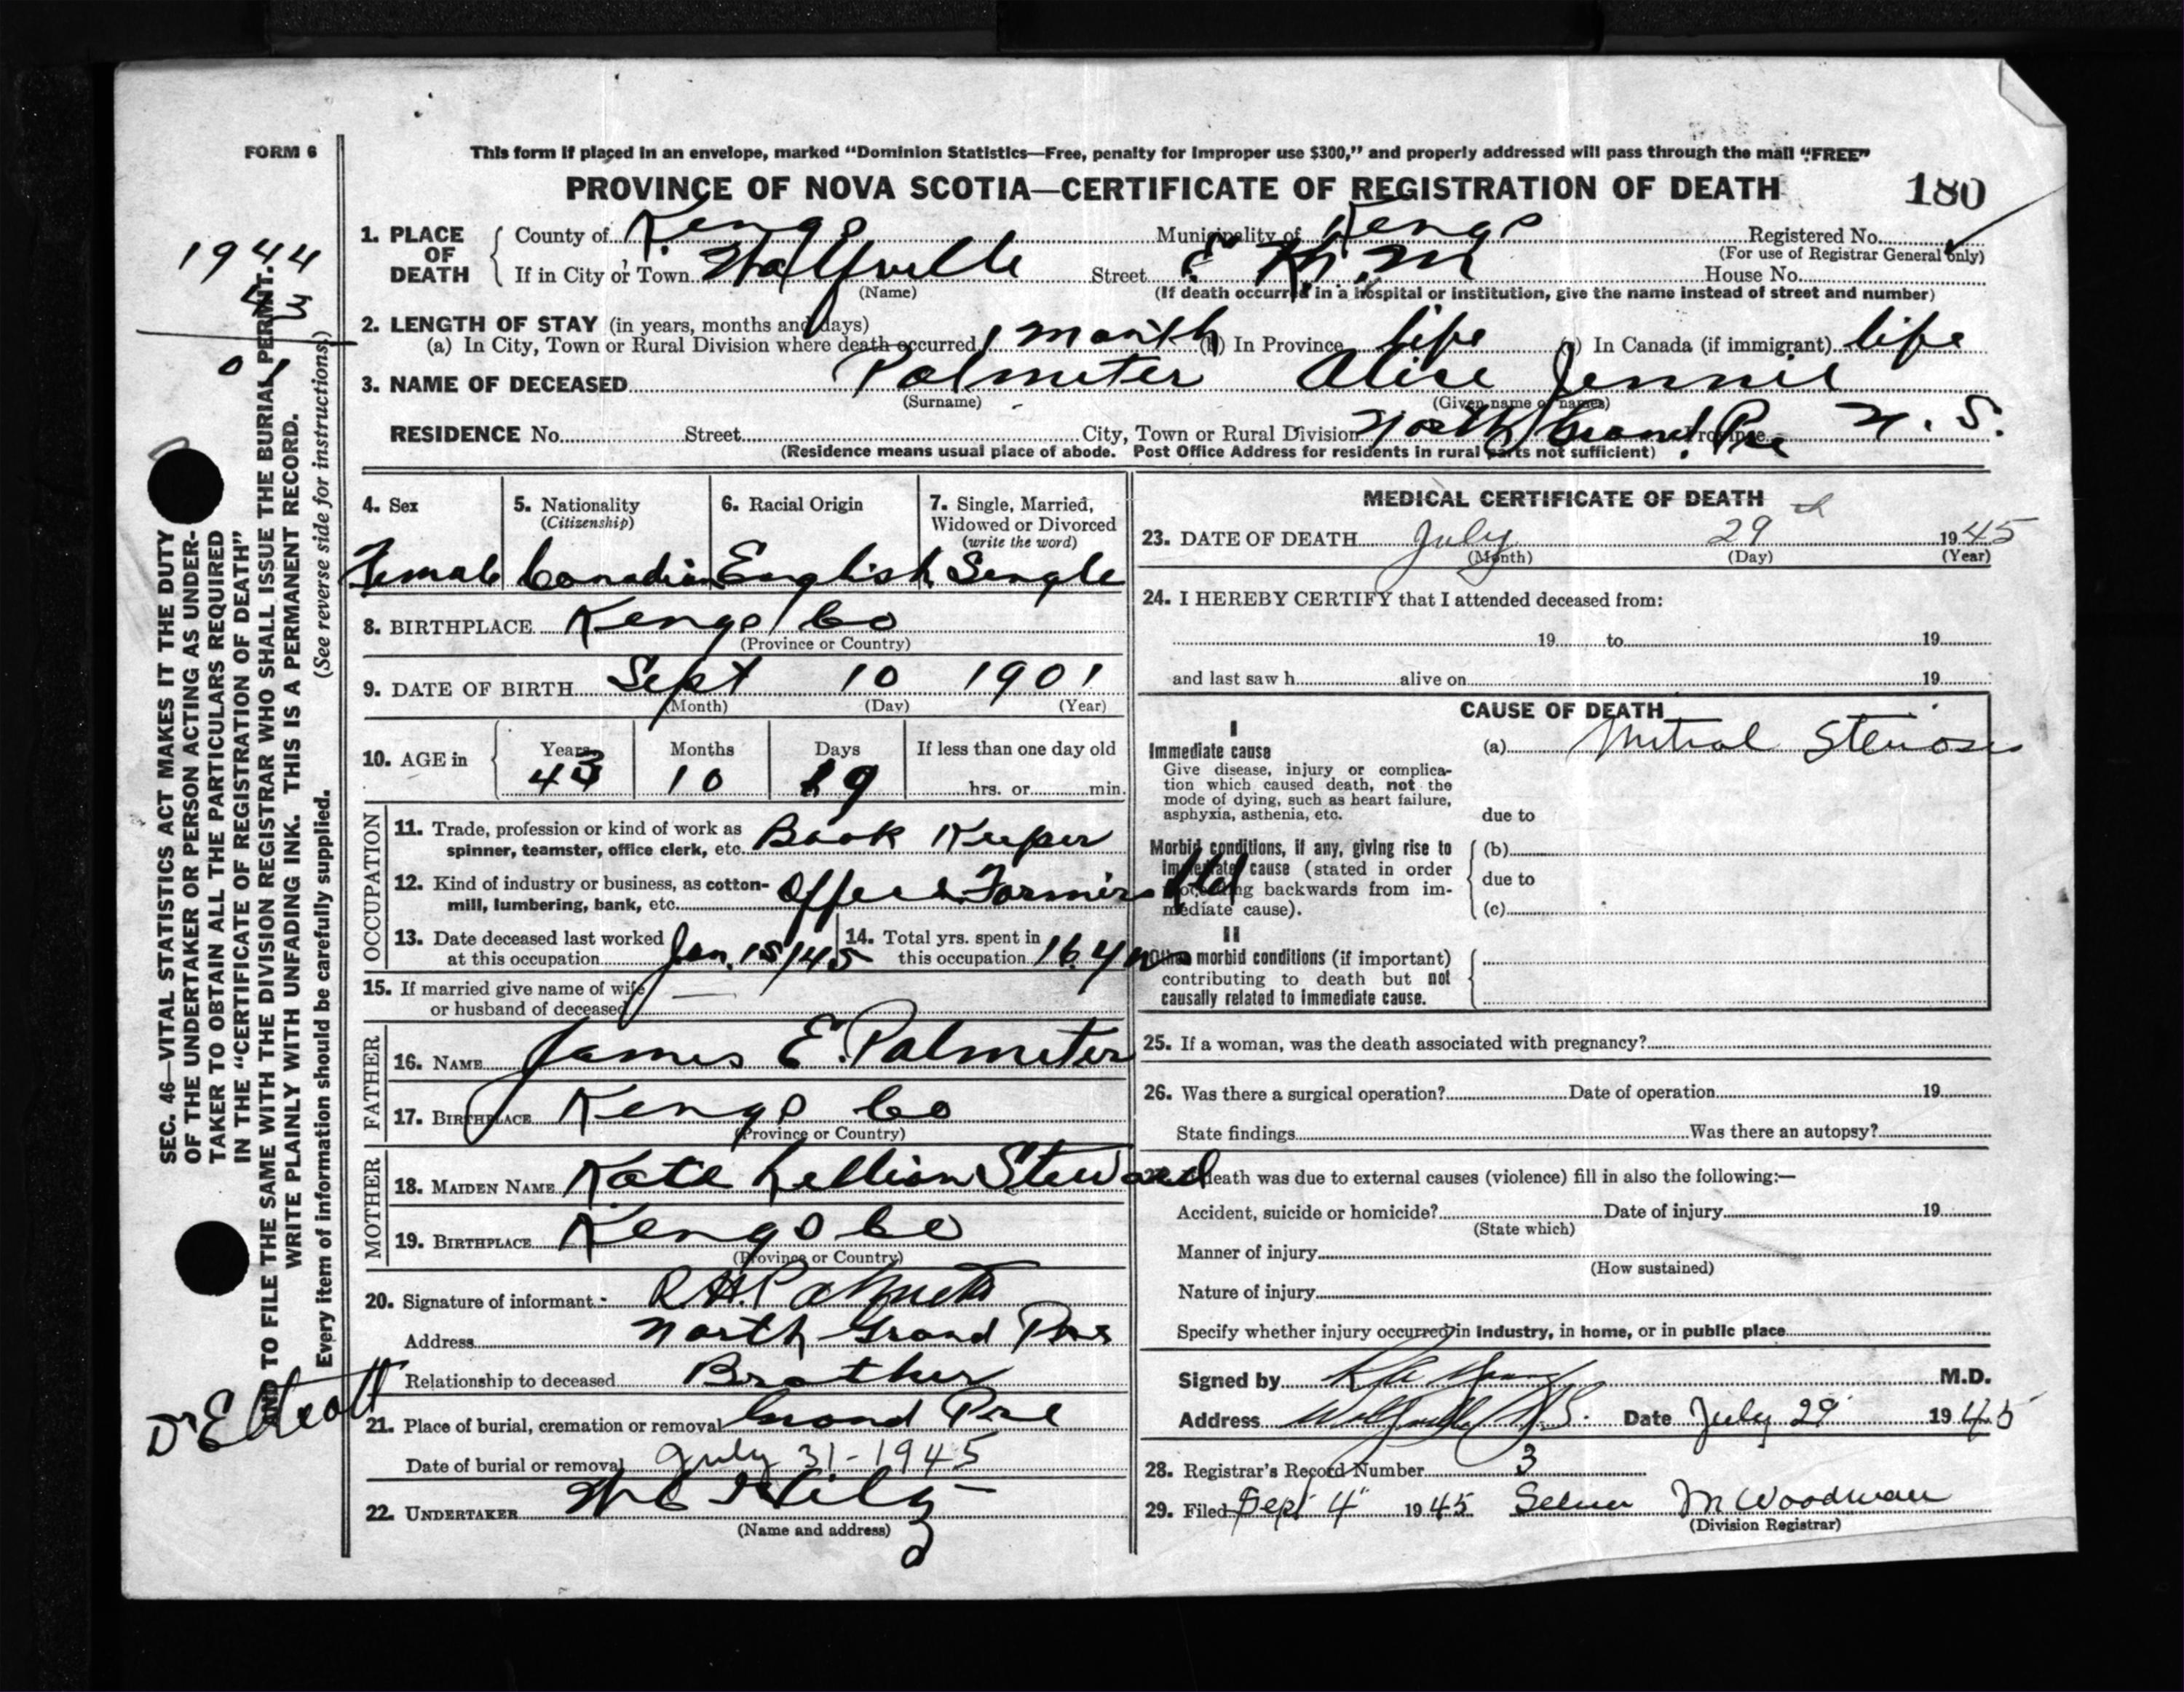 FORM 6
This form if placed in an envelope, marked "Dominion Statistics—Free, penalty for improper use $300," and properly addressed will pass through the mail "FREE"
PROVINCE OF NOVA SCOTIA—CERTIFICATE OF REGISTRATION OF DEATH 180
1. PLACE OF DEATH { County of Kings Municipality of Kings Registered No.
(For use of Registrar General only)
If in City or Town Wolfville Street E. K. M. House No.
(Name) (If death occurred in a hospital or institution, give the name instead of street and number)
2. LENGTH OF STAY (in years, months and days)
(a) In City, Town or Rural Division where death occurred 1 month (b) In Province life (c) In Canada (if immigrant) life
3. NAME OF DECEASED Palmeter Alice Jennie
(Surname) (Given name or names)
RESIDENCE No. Street City, Town or Rural Division North Grand Pre Province N. S.
(Residence means usual place of abode. Post Office Address for residents in rural parts not sufficient)
4. Sex 5. Nationality 6. Racial Origin 7. Single, Married,
(Citizenship) Widowed or Divorced
(write the word)
Female Canadian English Single
8. BIRTHPLACE Kings Co
(Province or Country)
9. DATE OF BIRTH Sept 10 1901
(Month) (Day) (Year)
10. AGE in { Years Months Days If less than one day old
43 10 19 hrs. or min.
OCCUPATION
11. Trade, profession or kind of work as
spinner, teamster, office clerk, etc. Book Keeper
12. Kind of industry or business, as cotton-
mill, lumbering, bank, etc. Office Farmers Ltd
13. Date deceased last worked
at this occupation Jan. 15/45
14. Total yrs. spent in
this occupation 16
15. If married give name of wife
or husband of deceased —
FATHER
16. NAME James E. Palmeter
17. BIRTHPLACE Kings Co
(Province or Country)
MOTHER
18. MAIDEN NAME Kate Lillian Steward
19. BIRTHPLACE Kings Co
(Province or Country)
20. Signature of informant R.H. Palmeter
Address North Grand Pre
Relationship to deceased Brother
21. Place of burial, cremation or removal Grand Pre
Date of burial or removal July 31-1945
22. UNDERTAKER
(Name and address)
MEDICAL CERTIFICATE OF DEATH
23. DATE OF DEATH July 29th 1945
(Month) (Day) (Year)
24. I HEREBY CERTIFY that I attended deceased from:
19 to 19
and last saw h alive on 19
CAUSE OF DEATH
I
Immediate cause (a) Mitral Stenosis
Give disease, injury or complica-
tion which caused death, not the
mode of dying, such as heart failure,
asphyxia, asthenia, etc. due to
Morbid conditions, if any, giving rise to (b)
immediate cause (stated in order due to
proceeding backwards from im-
mediate cause). (c)
II
Other morbid conditions (if important)
contributing to death but not
causally related to immediate cause.
25. If a woman, was the death associated with pregnancy?
26. Was there a surgical operation? Date of operation 19
State findings Was there an autopsy?
27. If death was due to external causes (violence) fill in also the following:—
Accident, suicide or homicide? Date of injury 19
(State which)
Manner of injury
(How sustained)
Nature of injury
Specify whether injury occurred in industry, in home, or in public place
Signed by M.D.
Address Wolfville N.S. Date July 29 1945
28. Registrar's Record Number 3
29. Filed Sept 4" 1945 M Woodman
(Division Registrar)
SEC. 46—VITAL STATISTICS ACT MAKES IT THE DUTY
OF THE UNDERTAKER OR PERSON ACTING AS UNDER-
TAKER TO OBTAIN ALL THE PARTICULARS REQUIRED
IN THE "CERTIFICATE OF REGISTRATION OF DEATH"
AND TO FILE THE SAME WITH THE DIVISION REGISTRAR WHO SHALL ISSUE THE BURIAL PERMIT.
WRITE PLAINLY WITH UNFADING INK. THIS IS A PERMANENT RECORD.
Every item of information should be carefully supplied. (See reverse side for instructions.)
1944